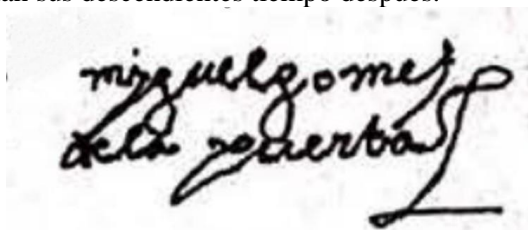 an sus descendientes tiempo después.
miguel gomes
dela puerta